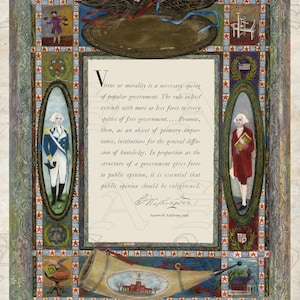 Virtue or morality is a necessary spring
of popular government. The rule indeed
extends with more or less force to every
species of free government. . . . Promote,
then, as an object of primary impor-
tance, institutions for the general diffu-
sion of knowledge. In proportion as the
structure of a government gives force
to public opinion, it is essential that
public opinion should be enlightened.
G Washington
Farewell Address, 1796